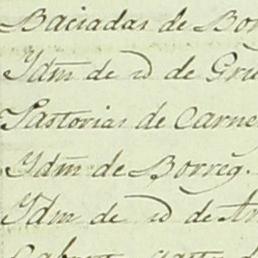 Baciadas de Bor
Ydm̃ de id de Gru
Pastorias de Carne
Ydm̃ de Borreg.
Ydm de id de An